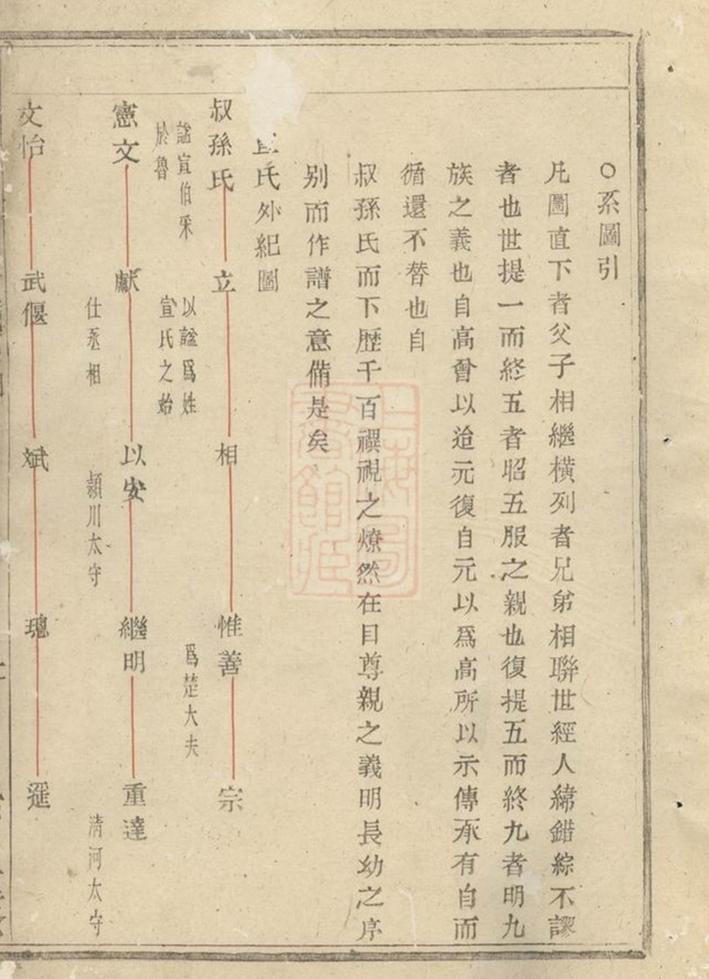 ○系圖引
凡圖直下者父子相繼橫列者兄弟相聯世經人緯錯綜不謬
者也世提一而終五者昭五服之親也復提五而終九者明九
族之義也自高曾以迨元復自元以爲高所以示傳承有自而
循還不替也自
叔孫氏而下歷千百禩視之燎然在目尊親之義明長幼之序
别而作譜之意備是矣
氏外紀圖
叔孫氏 立 相 惟善 宗
諡宣伯采
於魯
以諡爲姓
宣氏之始
爲楚大夫
憲文 獻 以安 繼明 重達
仕丞相
潁川太守
清河太守
文怡 武偃 斌 璁 暹